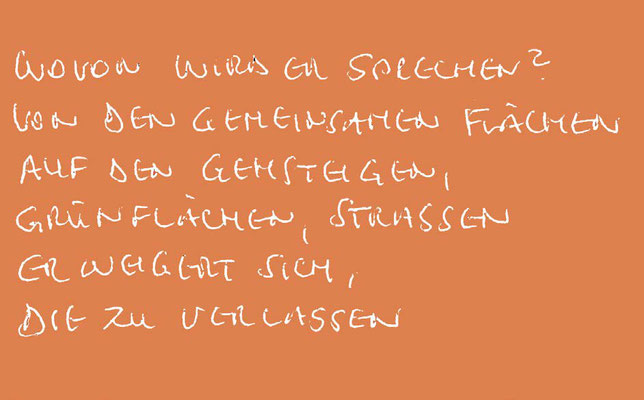 WOVON WIRD ER SPRECHEN?
VON DEN GEMEINSAMEN FLÄCHEN
AUF DEN GEHSTEIGEN,
GRÜNFLÄCHEN, STRASSEN
ER WEIGERT SICH,
DIE ZU VERLASSEN